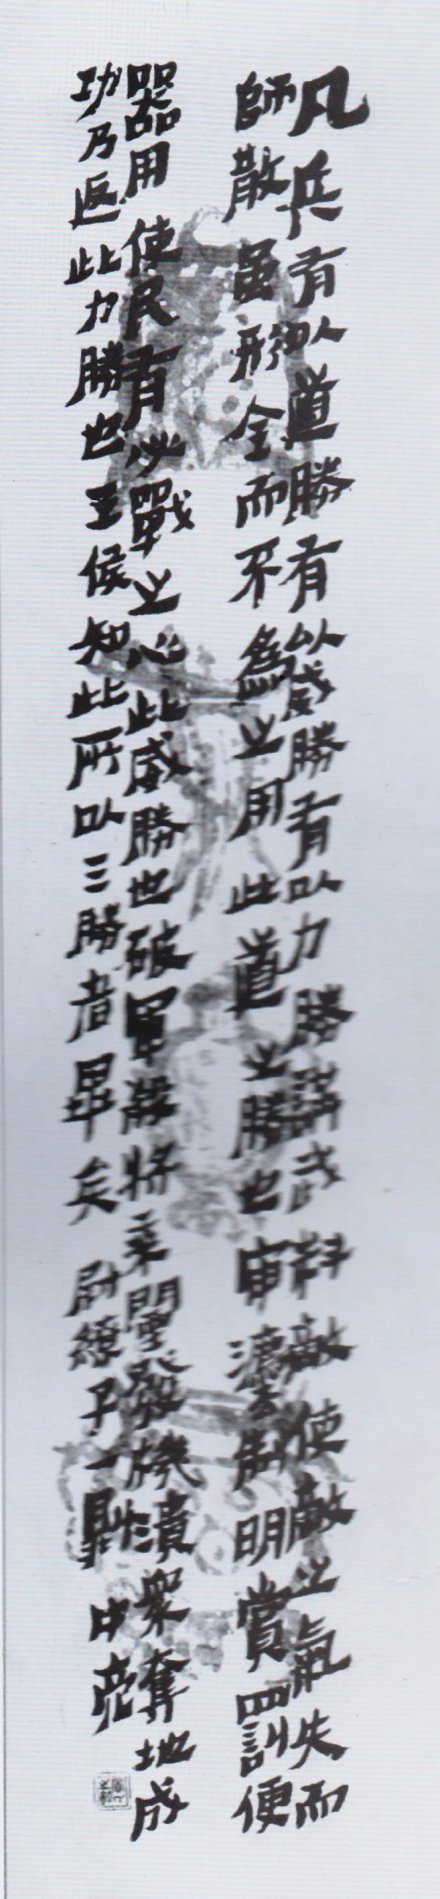 凡兵有以道勝有以威勝有以力勝講武料敵使敵之氣失而
師散虽形全而不為之用此道之勝也审灋制明賞罰便
器用使民有必戰之心此威勝也破軍殺将乘闉發機潰衆奪地成
功乃返此力勝也王侯知此所以三勝者畢矣 尉繚子一則 中亮